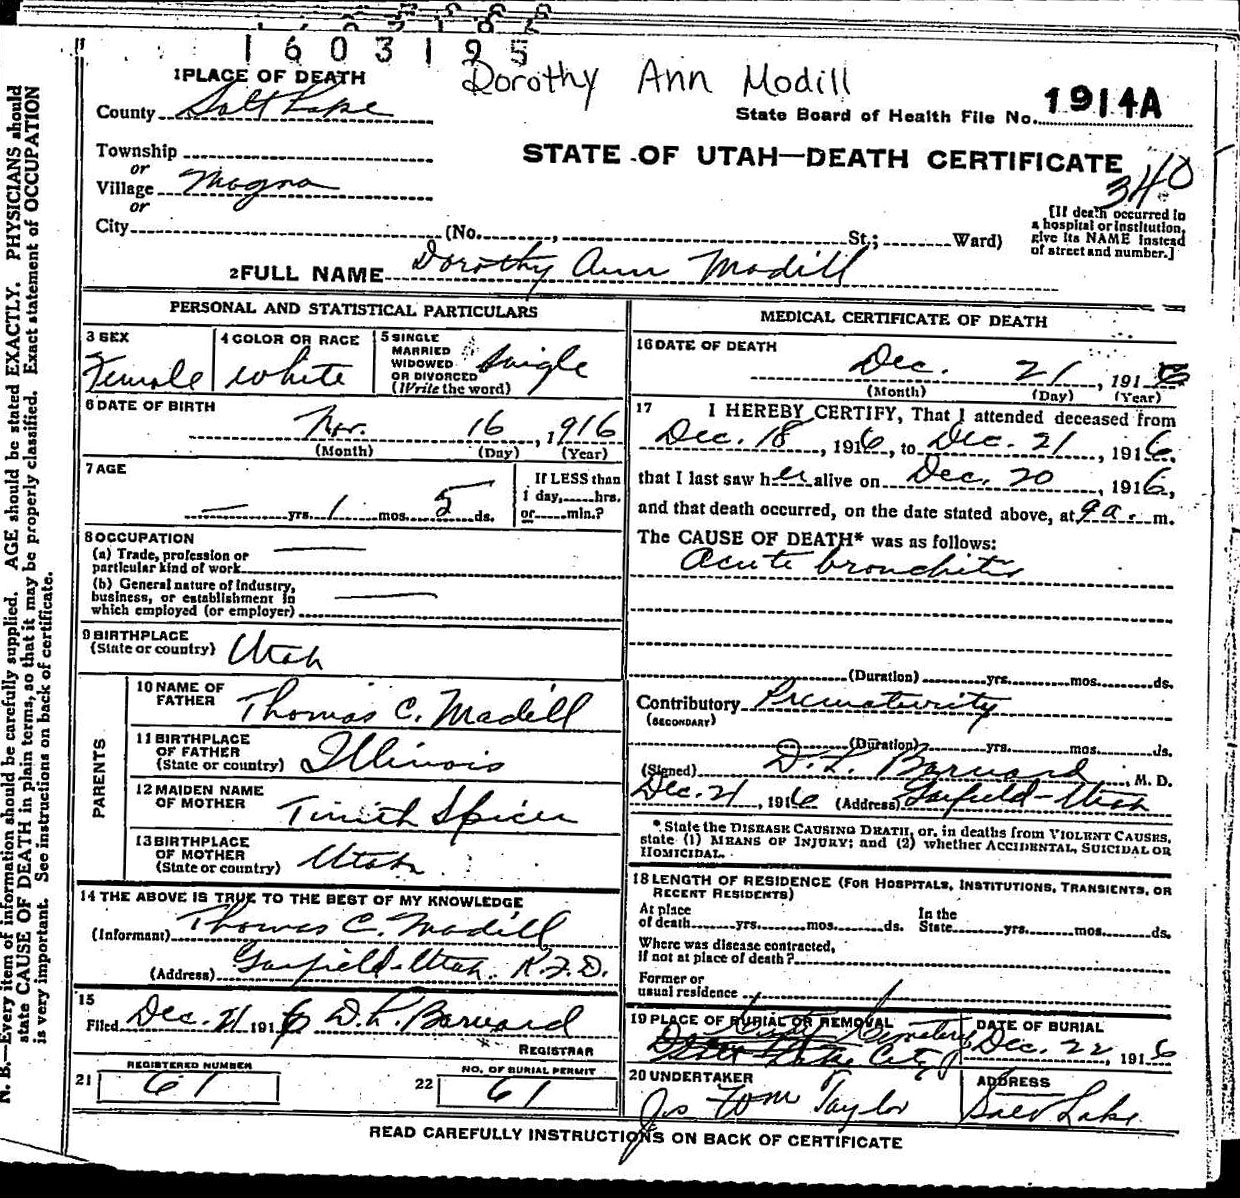 1603195
Dorothy Ann Modill
1 PLACE OF DEATH
County Salt Lake
State Board of Health File No. 1914A
Township
or
Village Magna
or
City (No. , St.; Ward)
STATE OF UTAH—DEATH CERTIFICATE
340
[If death occurred in
a hospital or institution,
give its NAME instead
of street and number.]
2 FULL NAME Dorothy Ann Madill
PERSONAL AND STATISTICAL PARTICULARS
3 SEX Female
4 COLOR OR RACE white
5 SINGLE
MARRIED
WIDOWED
OR DIVORCED
(Write the word) Single
6 DATE OF BIRTH
Nov. 16, 1916
(Month) (Day) (Year)
7 AGE
— yrs. 1 mos. 5 ds.
If LESS than
1 day, hrs.
or min.?
8 OCCUPATION
(a) Trade, profession or
particular kind of work —
(b) General nature of industry,
business, or establishment in
which employed (or employer) —
9 BIRTHPLACE
(State or country) Utah
PARENTS
10 NAME OF
FATHER Thomas C. Madill
11 BIRTHPLACE
OF FATHER
(State or country) Illinois
12 MAIDEN NAME
OF MOTHER Spicer
13 BIRTHPLACE
OF MOTHER
(State or country) Utah
14 THE ABOVE IS TRUE TO THE BEST OF MY KNOWLEDGE
(Informant) Thomas C. Madill
(Address) Garfield-Utah. R.F.D.
15
Filed Dec. 21 1916 D. L. Barnard
REGISTRAR
21 REGISTERED NUMBER
61
22 NO. OF BURIAL PERMIT
61
MEDICAL CERTIFICATE OF DEATH
16 DATE OF DEATH
Dec. 21, 1916
(Month) (Day) (Year)
17 I HEREBY CERTIFY, That I attended deceased from
Dec. 18, 1916, to Dec. 21, 1916,
that I last saw her alive on Dec. 20, 1916,
and that death occurred, on the date stated above, at 9 a. m.
The CAUSE OF DEATH* was as follows:
Acute bronchitis
(Duration) yrs. mos. ds.
Contributory Prematurity
(SECONDARY)
(Duration) yrs. mos. ds.
(Signed) D. L. Barnard, M. D.
Dec. 21, 1916 (Address) Garfield-Utah
* State the DISEASE CAUSING DEATH, or, in deaths from VIOLENT CAUSES,
state (1) MEANS OF INJURY; and (2) whether ACCIDENTAL, SUICIDAL OR
HOMICIDAL.
18 LENGTH OF RESIDENCE (FOR HOSPITALS, INSTITUTIONS, TRANSIENTS, OR
RECENT RESIDENTS)
At place
of death yrs. mos. ds.
In the
State yrs. mos. ds.
Where was disease contracted,
if not at place of death?
Former or
usual residence
19 PLACE OF BURIAL OR REMOVAL
City Cemetery
Lake City
DATE OF BURIAL
Dec. 22, 1916
20 UNDERTAKER
Jos Wm Taylor
ADDRESS
Salt Lake
READ CAREFULLY INSTRUCTIONS ON BACK OF CERTIFICATE
N. B.—Every item of information should be carefully supplied. AGE should be stated EXACTLY. PHYSICIANS should
state CAUSE OF DEATH in plain terms, so that it may be properly classified. Exact statement of OCCUPATION
is very important. See instructions on back of certificate.